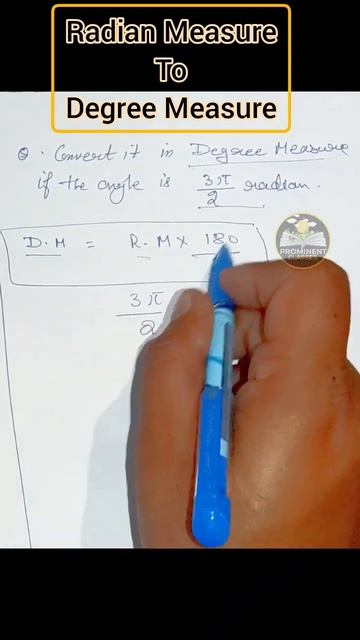 Radian Measure
To
Degree Measure
Q. Convert it in Degree Measure
if the angle is 3π/2 radian.
D.M = R.M × 180
3π/2
PROMINENT
CLASSES